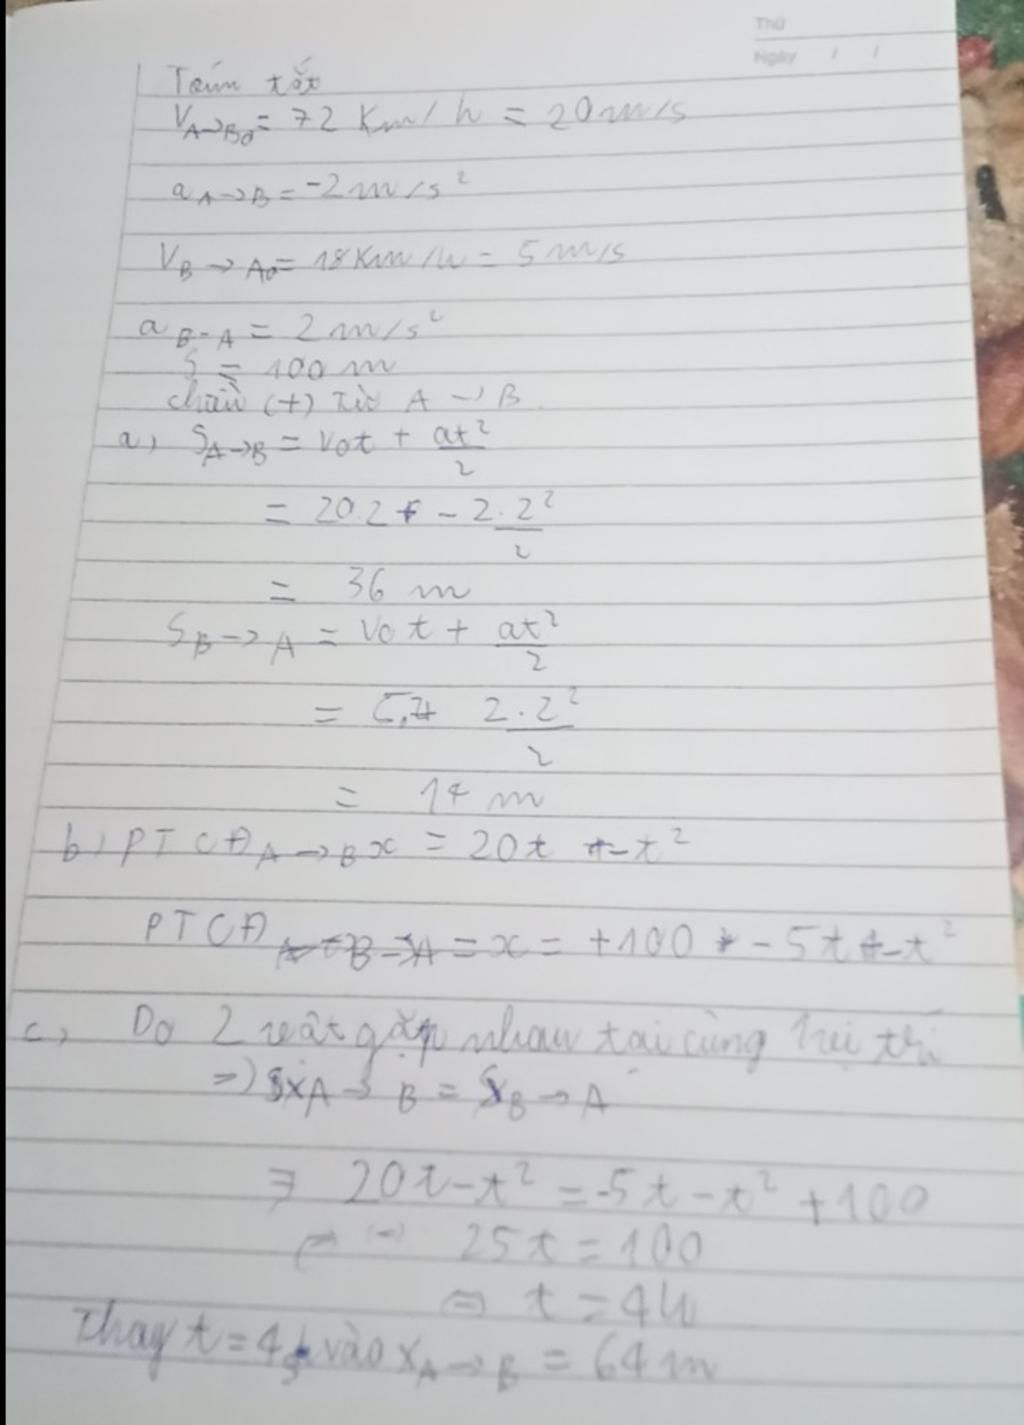 Thứ
Ngày / /
Tóm tắt
V_A→B0 = 72 Km/h = 20m/s
a_A→B = -2m/s²
V_B→A0 = 18Km/h = 5m/s
a_B-A = 2m/s²
S = 100 m
chiều (+) từ A → B.
a, S_A→B = V0t + at²/2
= 20.2 - 2.2²/2
= 36 m
S_B→A = V0t + at²/2
= 2.2²/2
= 14 m
b, PTCĐ_A→B x = 20t - t²
PTCĐ_B→A = x = +100 - 5t - t²
c, Do 2 vật gặp nhau tại cùng vị trí
=> x_A→B = x_B→A
20t - t² = -5t - t² + 100
25t = 100
t = 4h
Thay t = 4 vào x_A→B = 64m